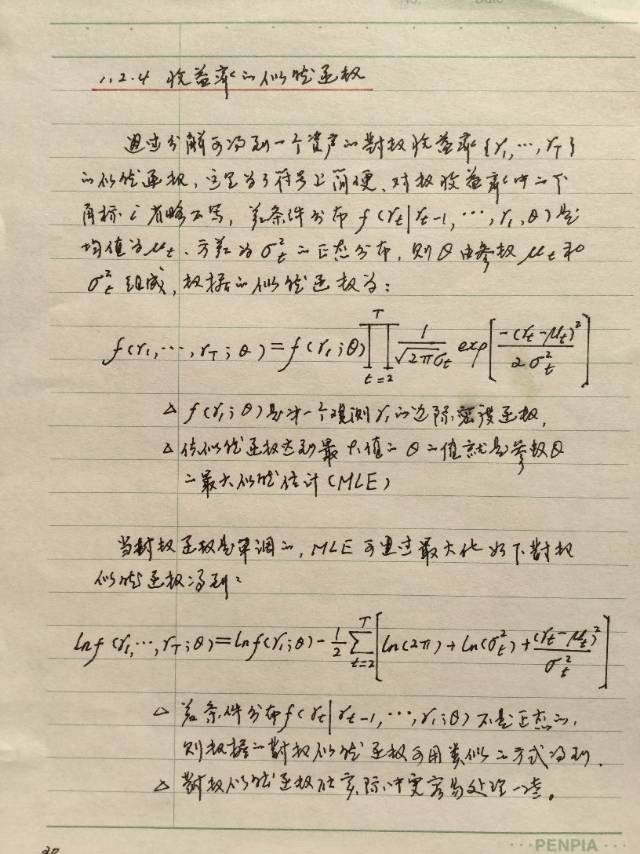 1.2.4 收益率的似然函数
通过分解可得到一个资产的對数收益率{r₁,…,r_T}
的似然函数，这里为了符号上简便，对数收益率中的下
角标 i 省略不写，若条件分布 f(r_t|r_{t-1},…,r₁,θ)是
均值为μ_t、方差为σ_t²的正态分布，则θ由参数μ_t和
σ_t²组成，数据的似然函数为：
f(r₁,…,r_T;θ)=f(r₁;θ)∏_{t=2}^{T} 1/(√(2π)σ_t) exp[-(r_t-μ_t)²/(2σ_t²)]
△ f(r₁;θ)是第一个观测r₁的边际密度函数，
△ 使似然函数达到最大值的θ的值就是参数θ
的最大似然估计(MLE)
当對数函数是单调的，MLE可通过最大化如下對数
似然函数得到：
lnf(r₁,…,r_T;θ)=lnf(r₁;θ)-½∑_{t=2}^{T}[ln(2π)+ln(σ_t²)+(r_t-μ_t)²/σ_t²]
△ 若条件分布f(r_t|r_{t-1},…,r₁;θ)不是正态的，
则数据的對数似然函数可用类似的方式得到．
△ 對数似然函数在实际中更容易处理一些。
PENPIA